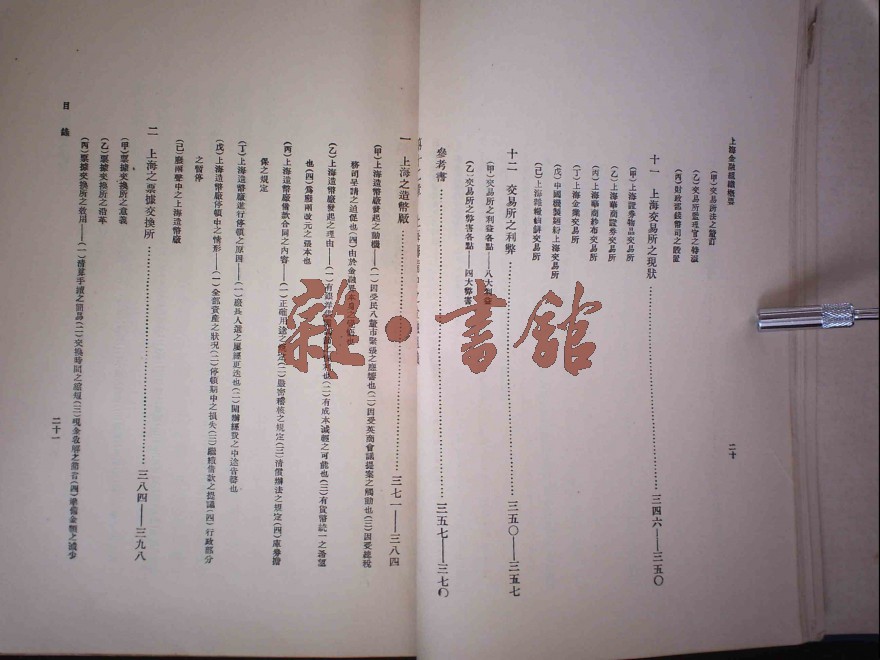 上海金融組織概要
(甲)交易所法之釐訂
(乙)交易所監理官之特派
(丙)財政部錢幣司之設置
十一 上海交易所之現狀……三四六—三五〇
(甲)上海證券物品交易所
(乙)上海華商證券交易所
(丙)上海華商紗布交易所
(丁)上海金業交易所
(戊)中國機製麵粉上海交易所
(己)上海雜糧油餅交易所
十二 交易所之利弊……三五〇—三五七
(甲)交易所之利益各點——八大利益
(乙)交易所之弊害各點——四大弊害
參考書……三五七—三七〇
二十
一 上海之造幣廠……三七一—三八四
(甲)上海造幣廠發起之動機——(一)因受民八釐市緊張之影響也(二)因受英商會議提案之觸動也(三)因受總稅
務司呈請之迫促也(四)由於金融界本身之
(乙)上海造幣廠發起之理由——(一)有(二)有成本減輕之可能也(三)有貨幣統一之希望
也(四)爲廢兩改元之張本也
(丙)上海造幣廠借款合同之內容——(一)正確用途之規定(二)嚴密稽核之規定(三)清償辦法之規定(四)庫券擔
保之規定
(丁)上海造幣廠進行停頓之原因——(一)廠長人選之屢經更迭也(二)開辦經費之中途告罄也
(戊)上海造幣廠停頓中之情形——(一)全部資產之狀況(二)停頓期中之損失(三)繼續借款之提議(四)行政部分
之暫停
(己)廢兩聲中之上海造幣廠
二 上海之票據交換所……三八四—三九八
(甲)票據交換所之意義
(乙)票據交換所之沿革
(丙)票據交換所之效用——(一)清算手續之簡易(二)交換時間之縮短(三)現金收解之節省(四)準備金額之減少
目錄
二十一
雜·書館